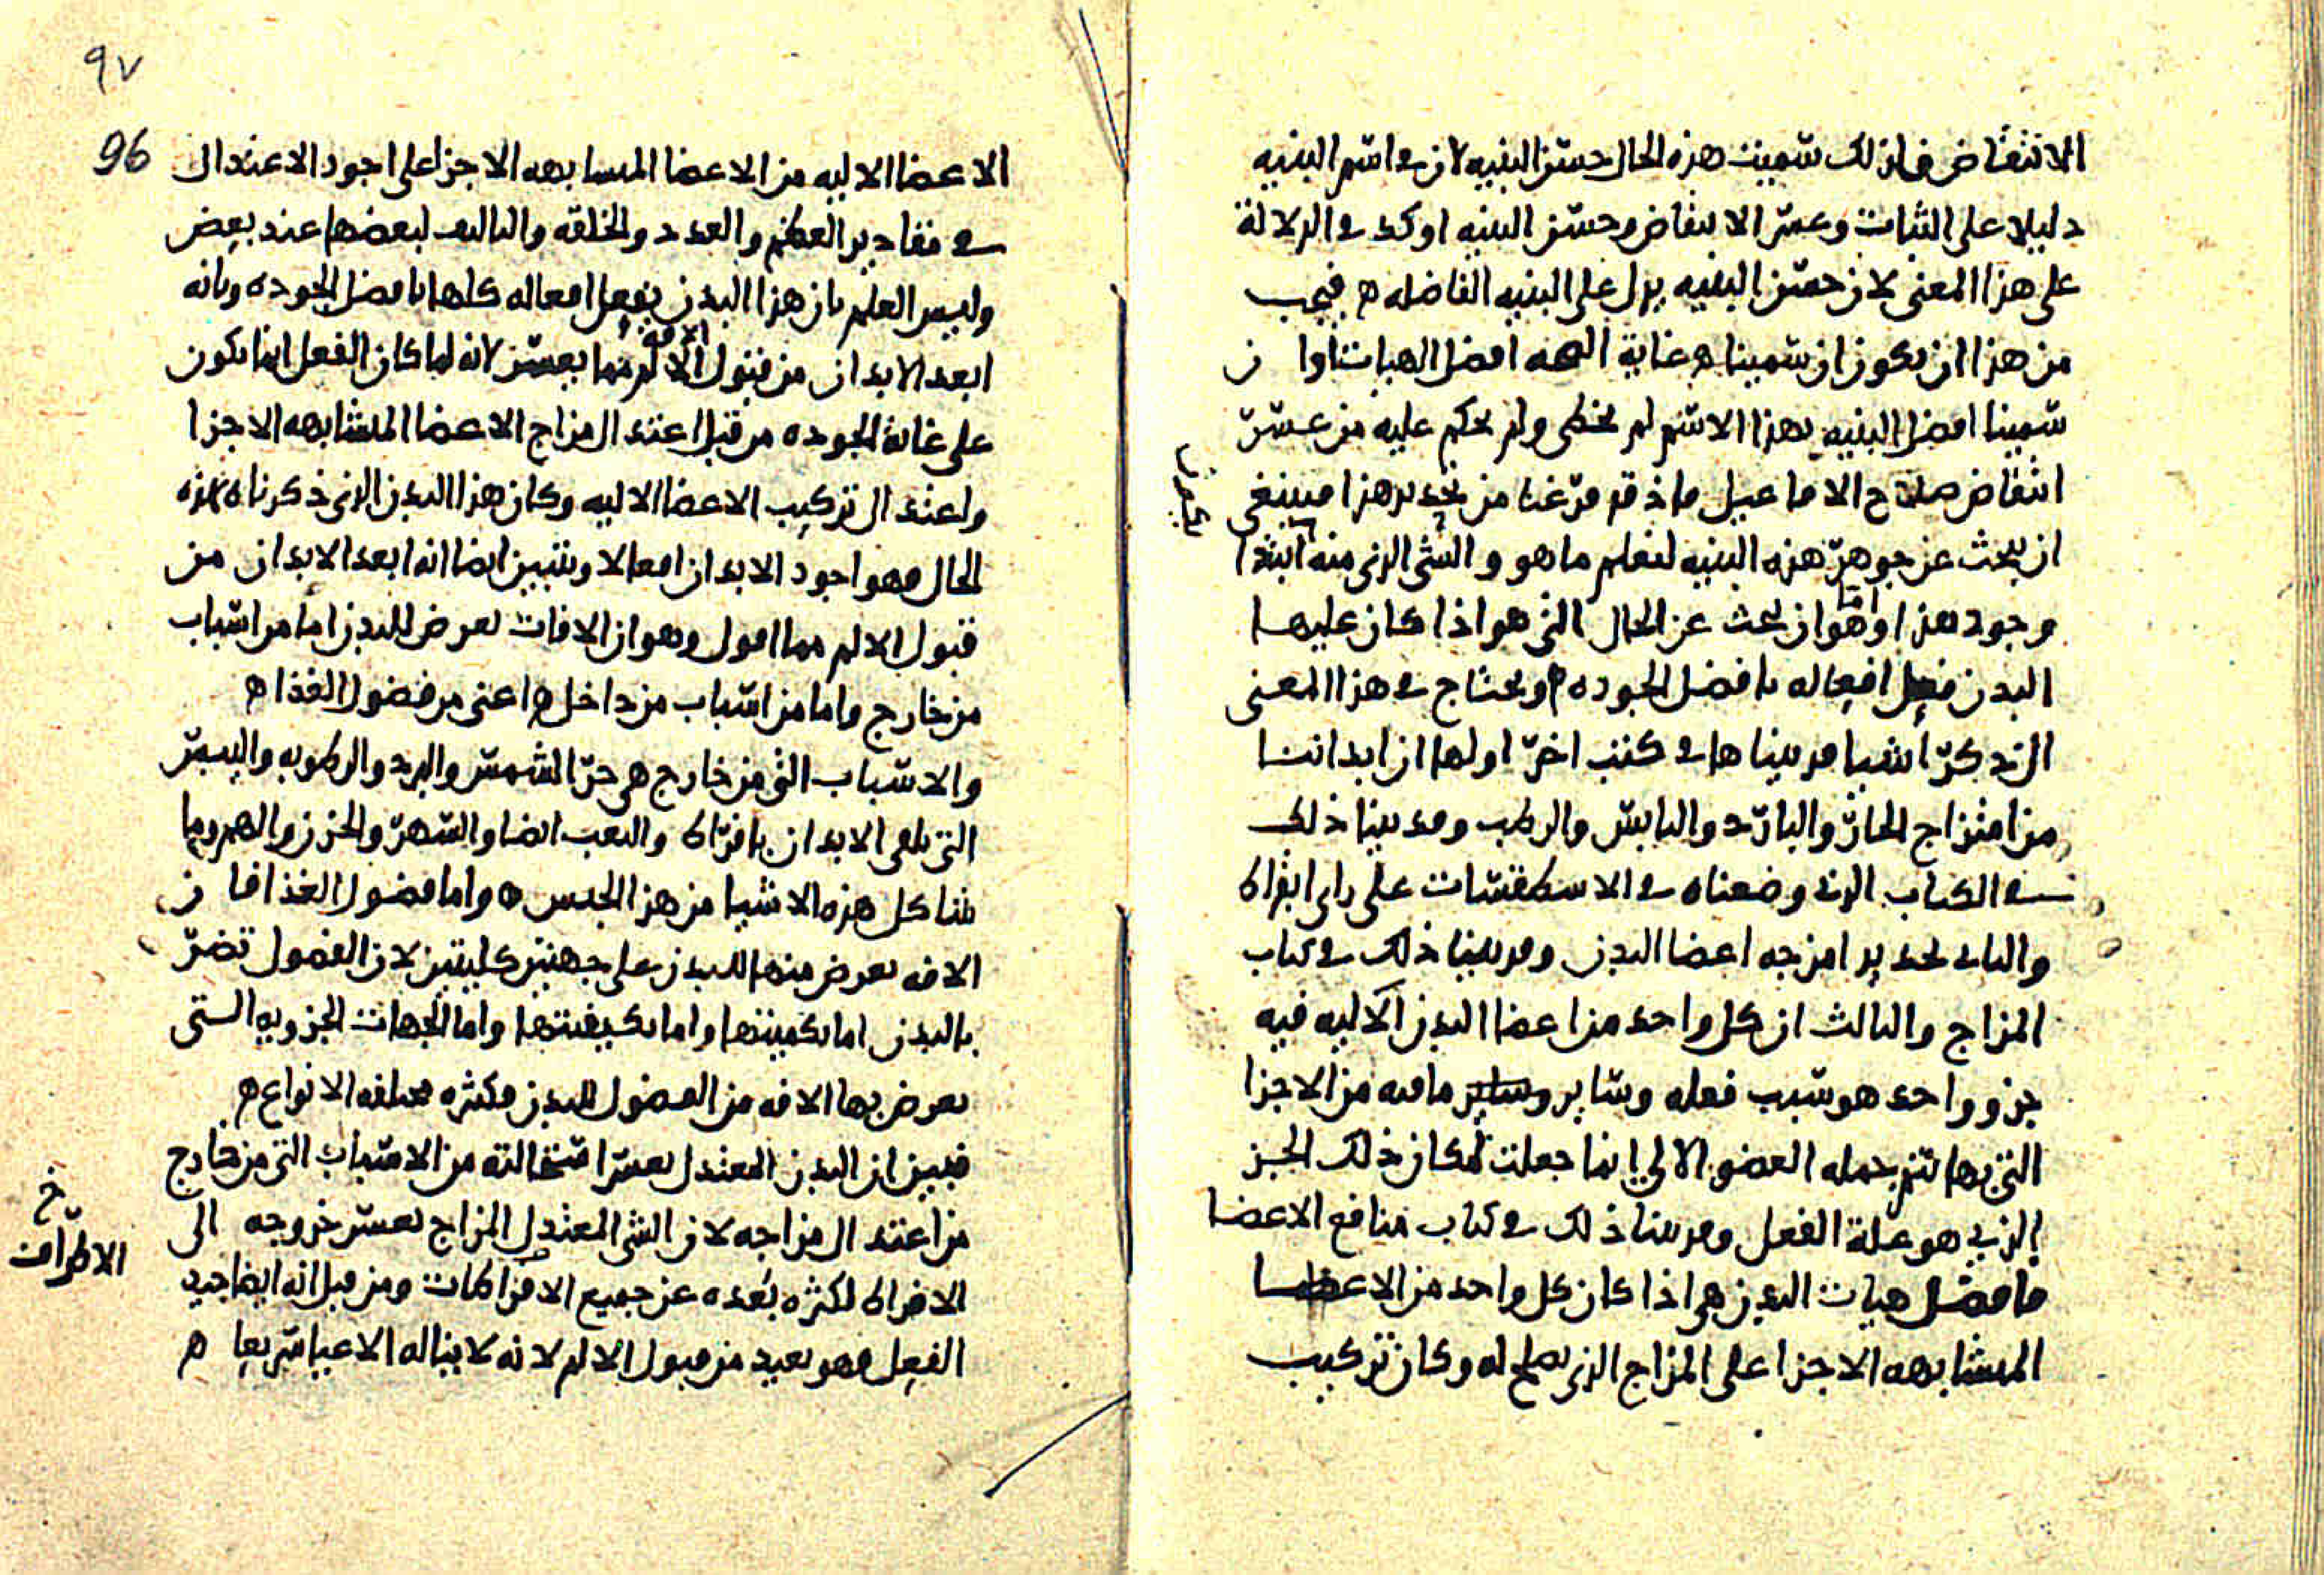 الانتقاض فلذلك سميت هذه الحال حسن البنيه لان في اسم البنيه
دليلا على الثبات وعسر الانتقاض وحسن البنيه اوكد في الدلالة
على هذا المعنى لان حسن البنيه يدل على البنيه الفاضله ه فيجب
من هذا ان يكون ان سميناه غاية الهيه افضل الهيات اوا ن
سمينا افضل البنيه بهذا الاسم لم نخطى ولم نحكم عليه من عسر
انتقاض صلاح الا ما عيل فاذ قد فرغنا من تحديد هذا فينبغي
ان نبحث عن جوهر هذه البنيه لنعلم ما هو والشى الذى منه ابتدا
وجود هذا وهو ان نبحث عن الحال التى هو اذا كان عليها
البدن فعل افعاله بافضل الجوده ه ونحتاج في هذا المعنى
ان نذكر اشيا قد بيناها في كتب اخر اولها ان ابداننا
من امتزاج الحار والبارد واليابس والرطب وقد بينا ذلك
في الكتاب الذي وضعناه في الاسطقسات على راى ابقراط
والثانى تحديد امزجه اعضا البدن وقد بينا ذلك في كتاب
المزاج والثالث ان كل واحد من اعضا البدن الاليه فيه
جزو واحد هو سبب فعله وساير وساير ما فيه من الاجزا
التى بها تتم جمله العضو الالي انما جعلت لمكان ذلك الجز
الذي هو علة الفعل وقد بينا ذلك في كتاب منافع الاعضا
فافضل هيات البدن هى اذا كان كل واحد من الاعضا
المتشابهه الاجزا على المزاج الذى يصلح له وكان تركيب
٩٧
96
الاعضا الاليه من الاعضا المتشابهه الاجزا على اجود الاعتدال
في مقادير العظم والعدد والخلقه والتاليف لبعضها عند بعض
وليس العلم بان هذا البدن يفعل افعاله كلها بافضل الجوده وبانه
الافة
ابعد الابدان من قبول الالم مما يعسر لانه لما كان الفعل انما يكون
على غاية الجوده من قبل اعتدال مزاج الاعضا المتشابهه الاجزا
واعتدال تركيب الاعضا الاليه وكان هذا البدن الذى ذكرناه بهذه
الحال فهو اجود الابدان افعالا ويتبين ايضا انه ابعد الابدان من
قبول الالم مما اقول وهو ان الافات تعرض للبدن اما من اسباب
من خارج واما من اسباب من داخل ه اعنى من فضول الغذا ه
والاسباب التى من خارج هى حر الشمس والبرد والرطوبه واليبس
التى تلقى الابدان بافراط والتعب ايضا والسهر والحزن والهم وما
شاكل هذه الاشيا من هذا الجنس ه واما فضول الغذا فا ن
الافه تعرض منها للبدن على جهتين كليتين لان الفضول تضر
بالبدن اما بكميتها واما بكيفيتها واما الجهات الجزويه التى
تعرض بها الافه من الفضول للبدن فكثيره مختلفه الانواع ه
فبين ان البدن المعتدل تعسر استحالته من الاسباب التى من خارج
من اعتدال مزاجه لان الشى المعتدل المزاج يعسر خروجه الى
الافراط لكثره بعده عن جميع الافراطات ومن قبل انه ايضا جيد
الفعل فهو بعيد من قبول الالم لانه لا يناله الاعيا سريعا ه
خ
الاطراف